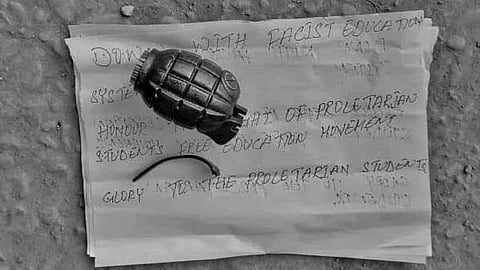 DOWN WITH FACIST EDUCATION
SYSTE
HONOUR THAT OF PROLETARIAN
STUDENTS FREE EDUCATION MOVEMENT
GLORY TO THE PROLETARIAN STUDENTS